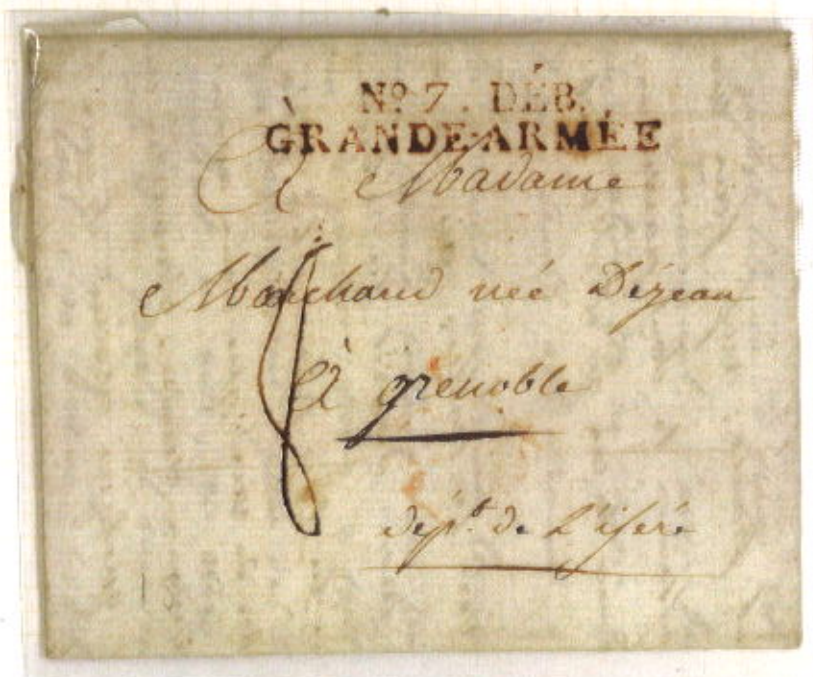 Nº 7. DÉB.
GRANDE-ARMÉE
À Madame
Marchand née Dézean
à grenoble
dépt. de L'isère